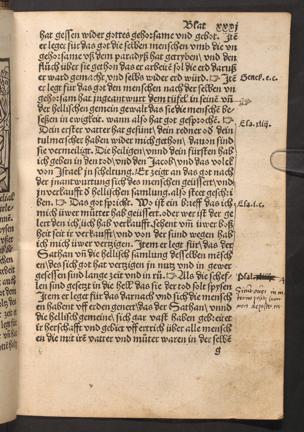 Blat xxxj
hat gessen wider gottes gehorsame vnd gebot. Jtē
er leget für das got die selben menschen vmb die vn
gehorsame vß dem paradyß hat getryben vnd den
flůch über sie gethon das er arbeitē sol die erd darus
er ward gemacht vnd selbs wider erd würd. Jtē
er legt für das got den menschen nach der selben vn
gehorsam hat in gewalt dem tüfel in seinē
der hellischen gemein gewalt das sie menschē be
seßen in ewigkeit. wann also hat got gesprochē.
Dein erster vatter hat gesünt dein redner od dein
tulmetscher haben wider mich gethon daron sind
sie vermeiliget. Die heiligen vnd dein fürsten hab
ich geben in den tod vnd den Jacob vnd das volck
von Jsrael zů scheltung. Er zeigt an das got nach
der
verkaufft d hellischen samling. als stet geschri
ben. Das got spricht. Wo ist ein brieff das ich
mich üwer můtter hab geüssert. oder wer ist der ge
lert den ich
heit seit ir verkaufft vnd von der sund wegen hab
ich mich üwer vertzigen. Jtem er legt für das der
Sathan vñ die hellisch samlung desselben mēsch
en des sich got hat vertzigen in nutz vnd in gewer
gesessen sind lange zeit vnd in rů. Als die schef-
len sind gesetzt in die hell das sie der tod sol spysen
Jtem er legt für das darnach vnd sich die mensch
en habent vff erden gemert das der Sathan vnnd
die hellisch gemein sich gar vast haben gebreitet
ir herschafft vnd gebiet vff ertrich über alle mensch
en die mit irē vatter vnd můter waren in der selbē
g
Genes. c.
Esa. xliij.
Esa. l. c.
Psal.